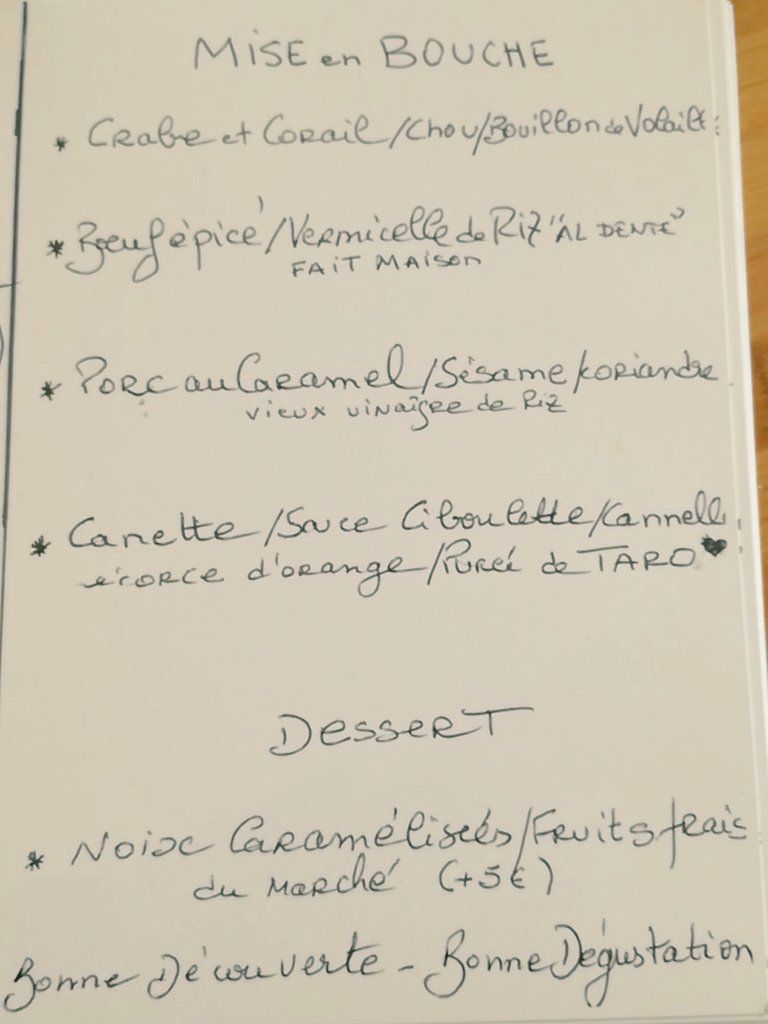 MISE en BOUCHE
* Crabe et Corail/Chou/Bouillon de Volaille
* Bœuf épicé/Vermicelle de Riz "AL DENTE"
FAIT MAISON
* Porc au Caramel/Sésame/coriandre
vieux vinaigre de Riz
* Canette/Sauce Ciboulette/Cannelle
écorce d'orange/Purée de TARO ♥
Dessert
* Noix Caramélisées/Fruits frais
du Marché (+5€)
Bonne Découverte - Bonne Dégustation